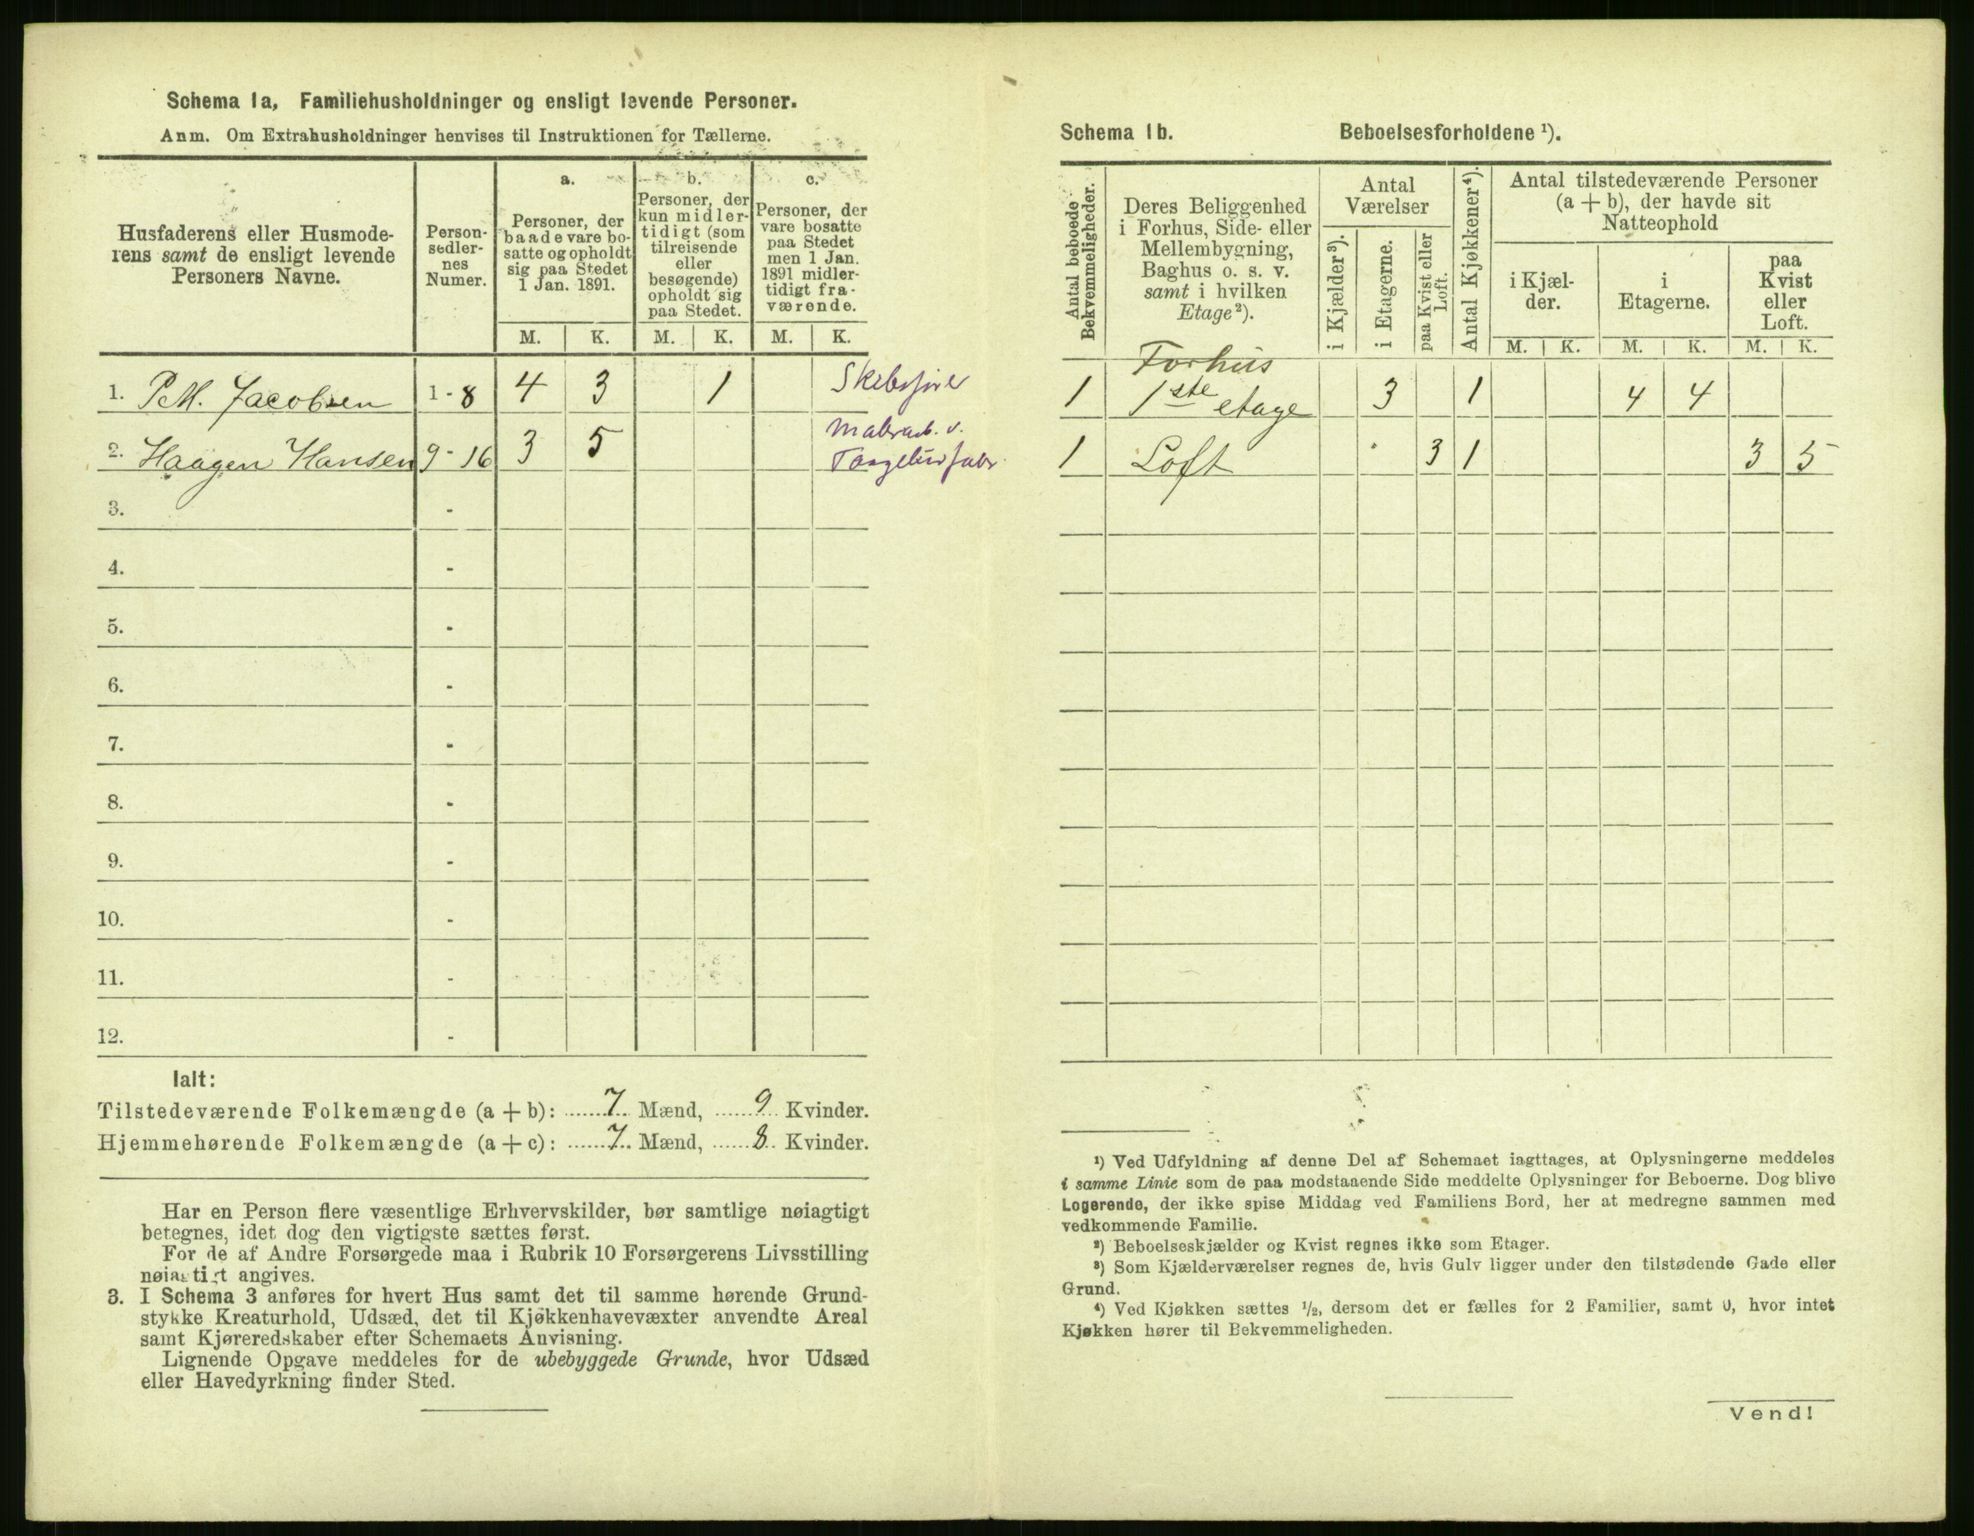 Schema 1a, Familiehusholdninger og ensligt levende Personer.
Anm. Om Extrahusholdninger henvises til Instruktionen for Tællerne.
Husfaderens eller Husmode-
rens samt de ensligt levende
Personers Navne.
Person-
sedler-
nes
Numer.
a.
Personer, der
baade vare bo-
satte og opholdt
sig paa Stedet
1 Jan. 1891.
b.
Personer, der
kun midler-
tidigt (som
tilreisende
eller
besøgende)
opholdt sig
paa Stedet.
c.
Personer, der
vare bosatte
paa Stedet
men 1 Jan.
1891 midler-
tidigt fra-
værende.
M. K. M. K. M. K.
1. P.M. Jacobsen 1 - 8 4 3 1 Skibsfører
2. Haagen Hansen 9 - 16 3 5 Malerarb. v.
3. -
4. -
5. -
6. -
7. -
8. -
9. -
10. -
11. -
12. -
Ialt:
Tilstedeværende Folkemængde (a + b): 7 Mænd, 9 Kvinder.
Hjemmehørende Folkemængde (a + c): 7 Mænd, 8 Kvinder.
Har en Person flere væsentlige Erhvervskilder, bør samtlige nøiagtigt
betegnes, idet dog den vigtigste sættes først.
For de af Andre Forsørgede maa i Rubrik 10 Forsørgerens Livsstilling
nøiagtigt angives.
3. I Schema 3 anføres for hvert Hus samt det til samme hørende Grund-
stykke Kreaturhold, Udsæd, det til Kjøkkenhavevæxter anvendte Areal
samt Kjøreredskaber efter Schemaets Anvisning.
Lignende Opgave meddeles for de ubebyggede Grunde, hvor Udsæd
eller Havedyrkning finder Sted.
Schema 1b. Beboelsesforholdene ¹).
Antal beboede
Bekvemmeligheder.
Deres Beliggenhed
i Forhus, Side- eller
Mellembygning,
Baghus o. s. v.
samt i hvilken
Etage ²).
Antal
Værelser
i Kjælder ³).
i Etagerne.
paa Kvist eller
Loft.
Antal Kjøkkener ⁴).
Antal tilstedeværende Personer
(a + b), der havde sit
Natteophold
i Kjæl-
der.
i
Etagerne.
paa
Kvist
eller
Loft.
M. K. M. K. M. K.
Forhus
1 1ste etage 3 1 4 4
1 Loft 3 1 3 5
¹) Ved Udfyldning af denne Del af Schemaet iagttages, at Oplysningerne meddeles
i samme Linie som de paa modstaaende Side meddelte Oplysninger for Beboerne. Dog blive
Logerende, der ikke spise Middag ved Familiens Bord, her at medregne sammen med
vedkommende Familie.
²) Beboelseskjælder og Kvist regnes ikke som Etager.
³) Som Kjælderværelser regnes de, hvis Gulv ligger under den tilstødende Gade eller
Grund.
⁴) Ved Kjøkken sættes ½, dersom det er fælles for 2 Familier, samt 0, hvor intet
Kjøkken hører til Bekvemmeligheden.
Vend!